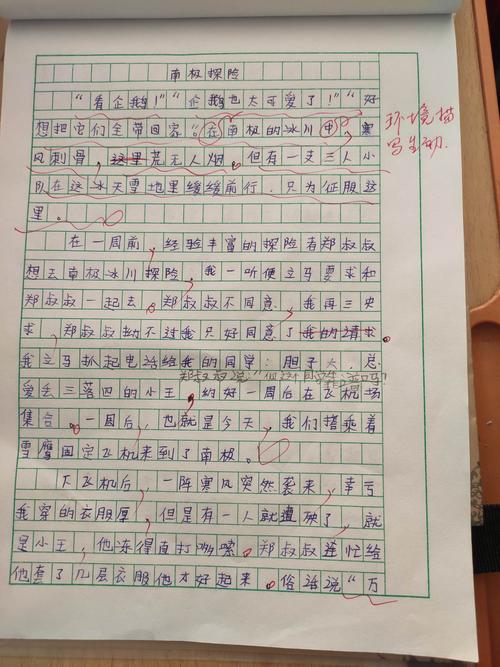 南极探险
“看企鹅！”“企鹅也太可爱了！”“好
想把它们全带回家”。在南极的冰川中，寒
风刺骨，这里荒无人烟。但有一支三人小
队在这冰天雪地里缓缓前行，只为征服这
里。
环境描
写生动.
在一周前，经验丰富的探险者郑叔叔
想去南极冰川探险，我一听便立马要求和
郑叔叔一起去，郑叔叔不同意，我再三央
求，郑叔叔拗不过我只好同意了我的请求。
我立马抓起电话给我的同学：胆子大，总
爱丢三落四的小王，约好一周后在飞机场
集合。一周后，也就是今天，我们搭乘着
雪鹰固定飞机来到了南极。
下飞机后，一阵寒风突然袭来，幸亏
我穿的衣服厚，但是有一人就遭殃了，就
是小王，他冻得直打哆嗦。郑叔叔连忙给
他套了几层衣服他才好起来。俗话说“万